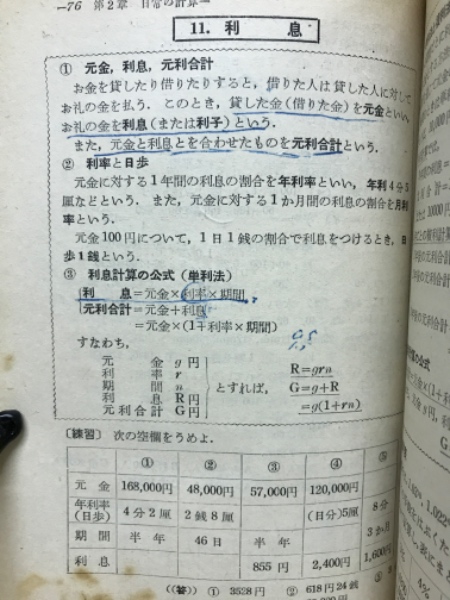 ―76 第2章 日常の計算―
11. 利 息
① 元金，利息，元利合計
お金を貸したり借りたりすると，借りた人は貸した人に対して
お礼の金を払う．このとき，貸した金(借りた金)を元金といい，
お礼の金を利息(または利子)という．
また，元金と利息とを合わせたものを元利合計という．
② 利率と日歩
元金に対する1年間の利息の割合を年利率といい，年利4分5
厘などという．また，元金に対する1か月間の利息の割合を月利
率という．
元金100円について，1日1銭の割合で利息をつけるとき，日
歩1銭という．
③ 利息計算の公式（単利法）
利 息＝元金×利率×期間
元利合計＝元金＋利息
＝元金×(1＋利率×期間)
すなわち，
元 金 g 円
利 率 r
期 間 n
利 息 R円
元利合計 G円
とすれば，
R＝grn
G＝g＋R
＝g(1＋rn)
〔練習〕 次の空欄をうめよ．
① ② ③ ④ ⑤
元 金 168,000円 48,000円 57,000円 120,000円
年利率(日歩) 4分2厘 2銭8厘 (日分)5厘 8分
期 間 半 年 46日 半 年 3か月
利 息 855円 2,400円 1,600円
((答)) ① 3528円 ② 618円24銭